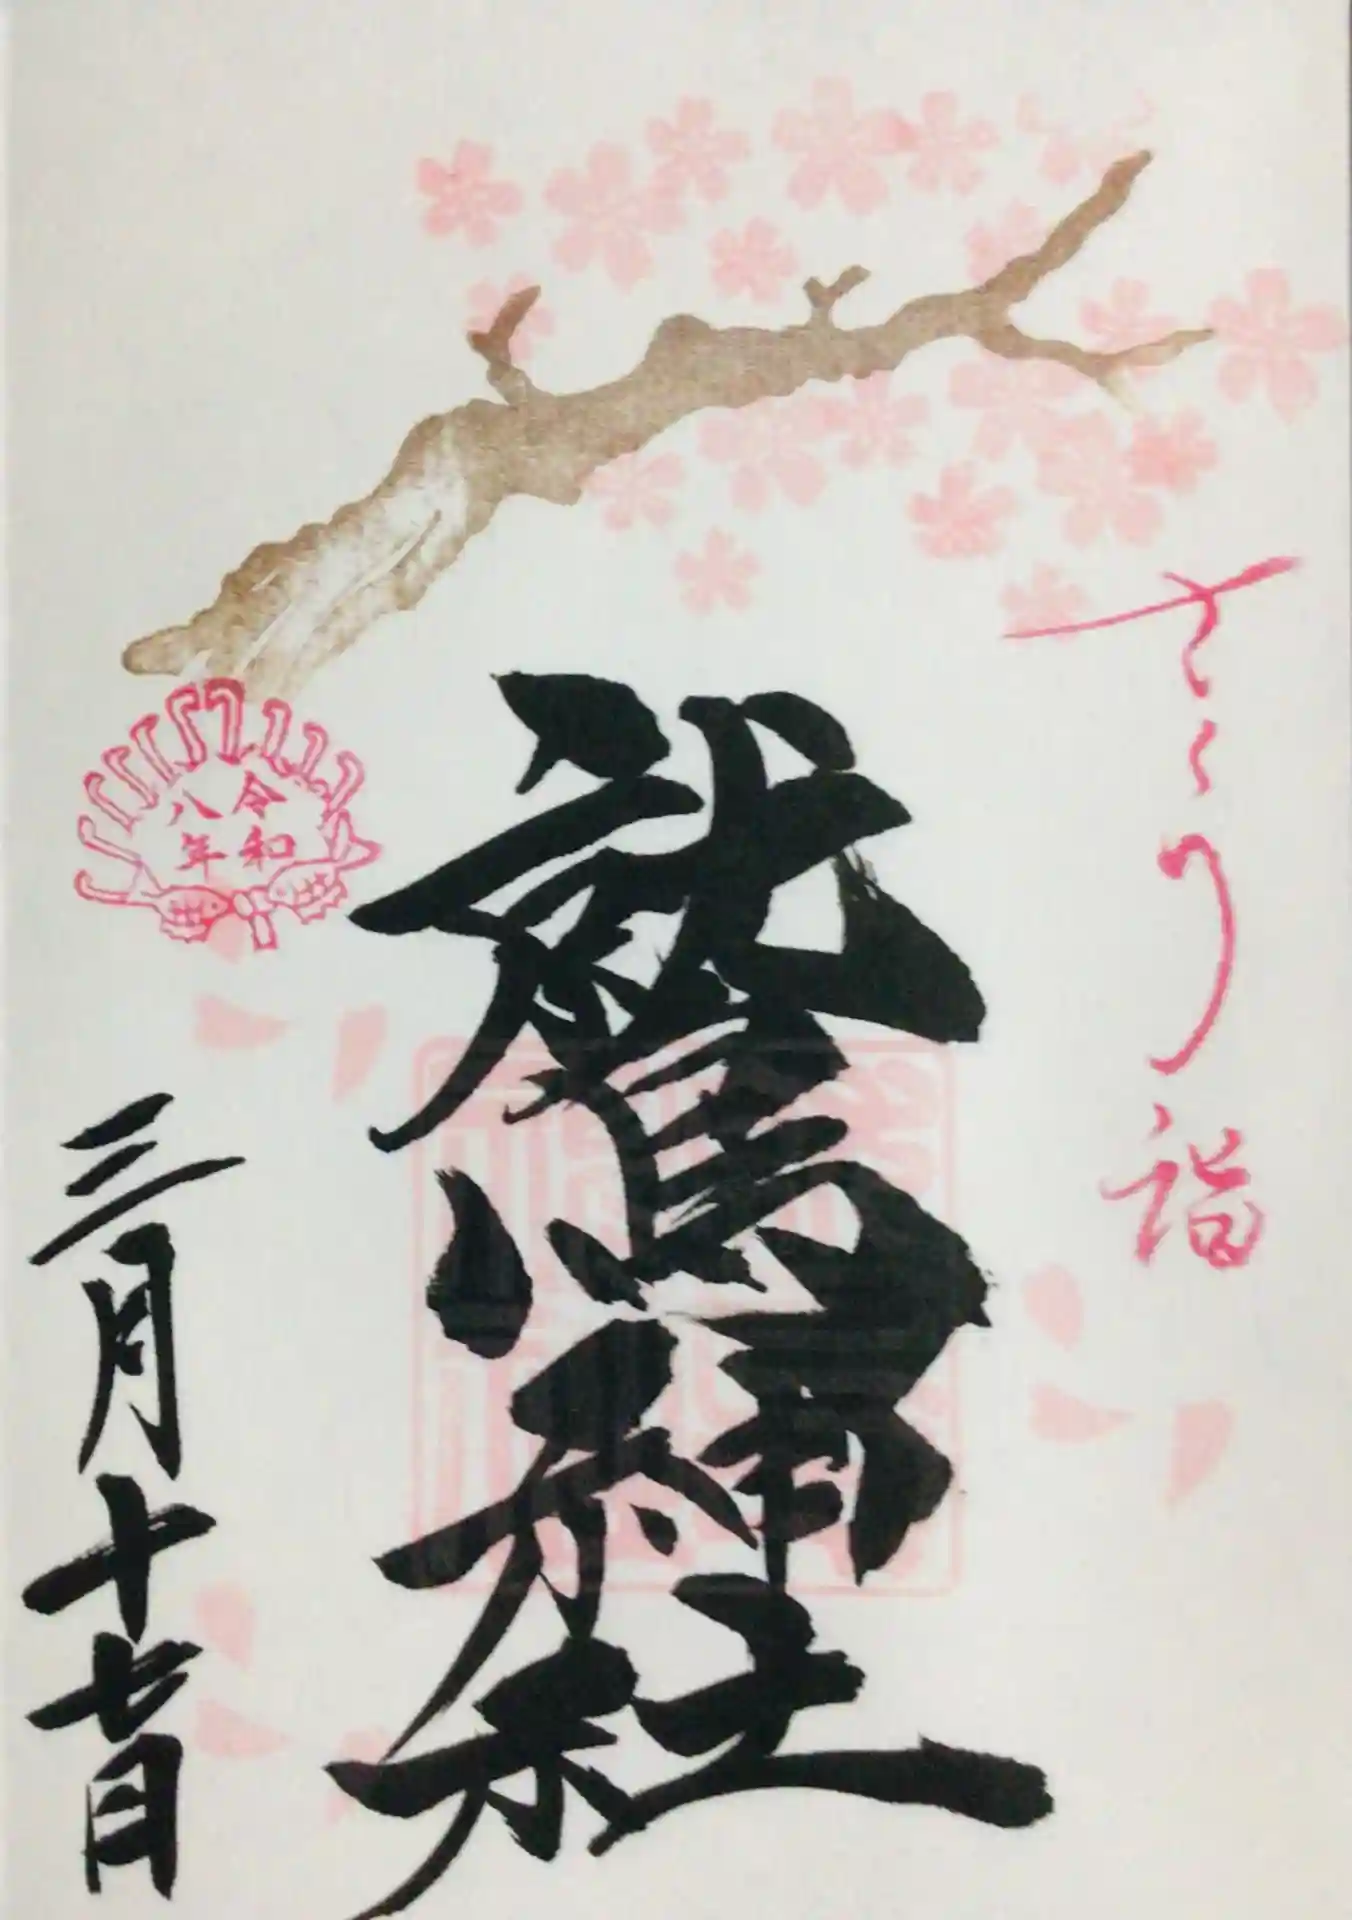 さくら詣
鷲神社
令和
八年
三月十七日